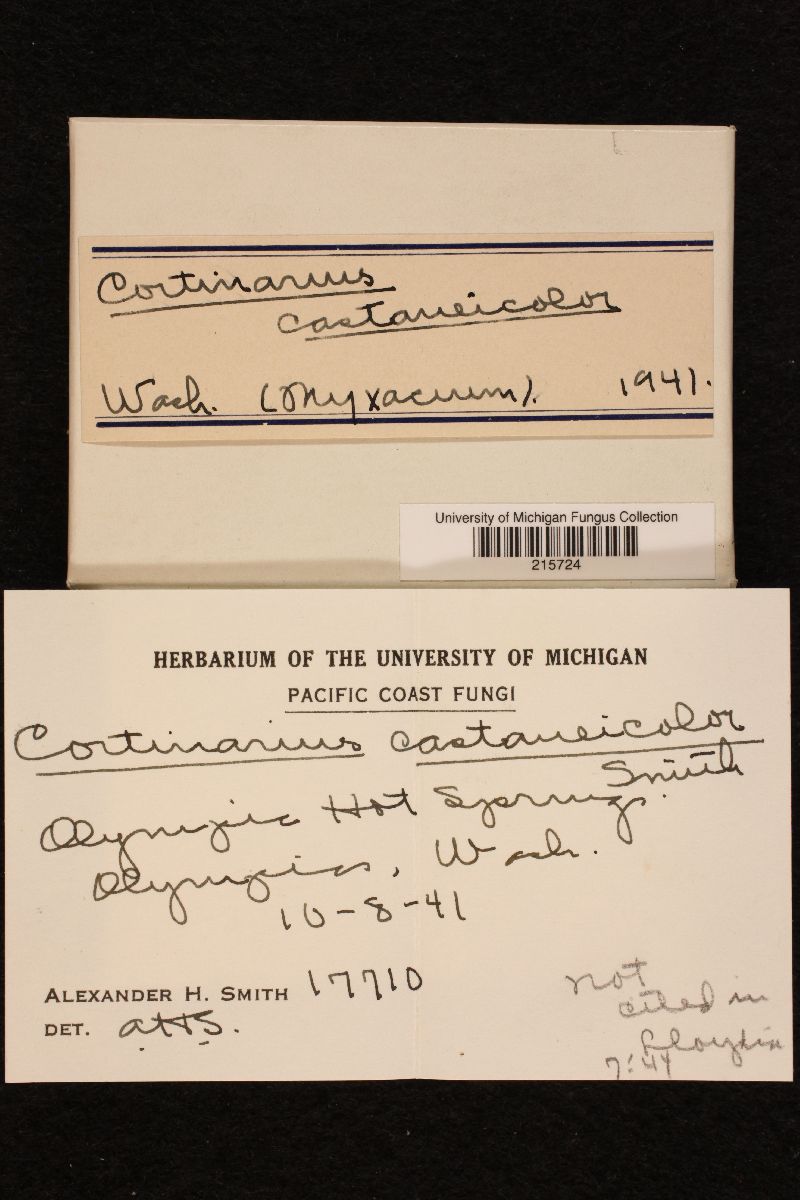 Cortinarius
castaneicolor
Wash. (Myxacium). 1941.
University of Michigan Fungus Collection
215724
HERBARIUM OF THE UNIVERSITY OF MICHIGAN
PACIFIC COAST FUNGI
Cortinarius castaneicolor
Smith
Olympic Hot Springs.
Olympics, Wash.
10-8-41
ALEXANDER H. SMITH 17710
DET. AHS.
not
cited in
Lloydia
7:44